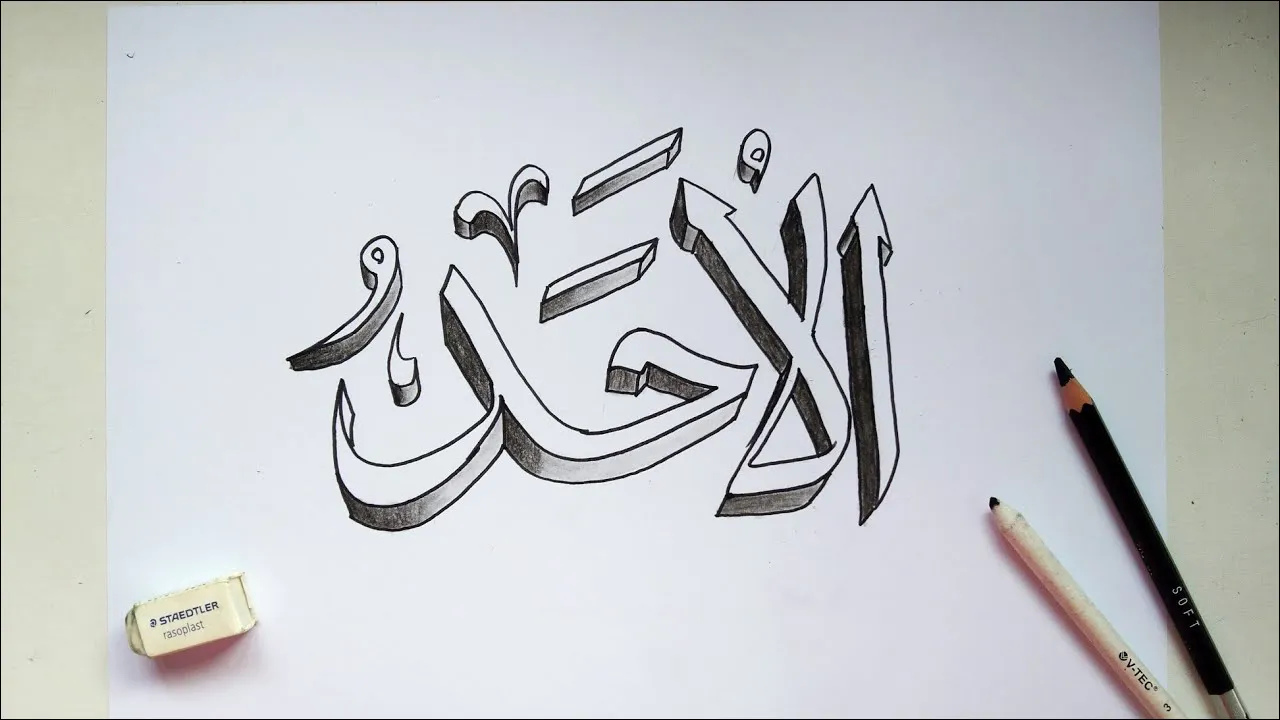 الأَحَدُ
STAEDTLER
rasoplast
SOFT
V-TEC® 3